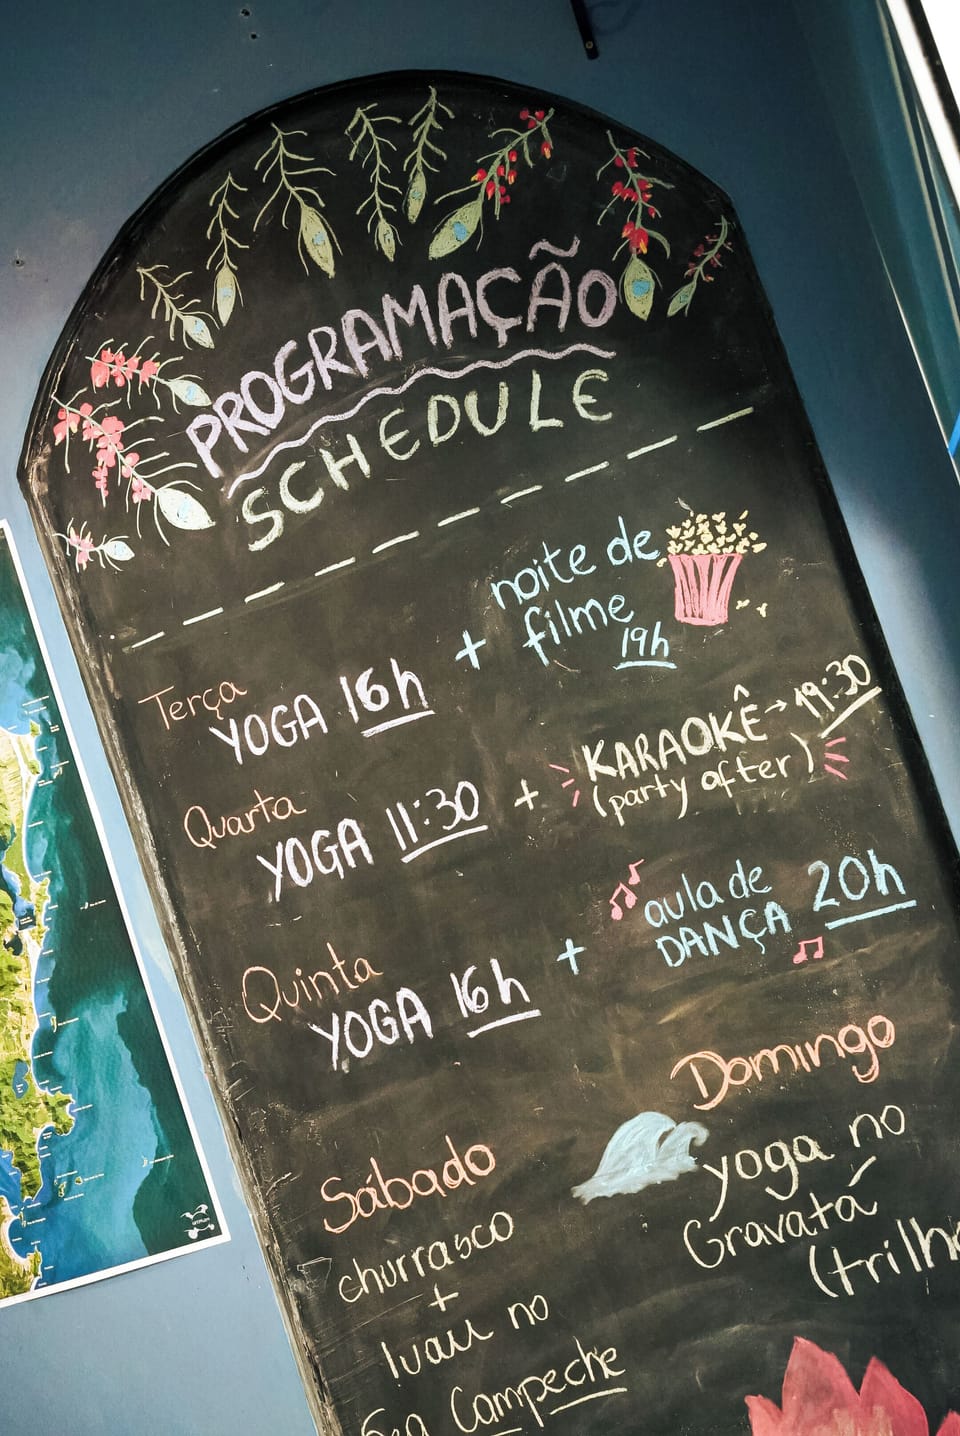 PROGRAMAÇÃO
SCHEDULE
Terça
YOGA 16h + noite de
filme
19h
Quarta
YOGA 11:30 + KARAOKÊ → 19:30
(party after)
Quinta
YOGA 16h + aula de
DANÇA 20h
Sábado
churrasco
+
luau no
Campeche
Domingo
yoga no
Gravatá
(trilh